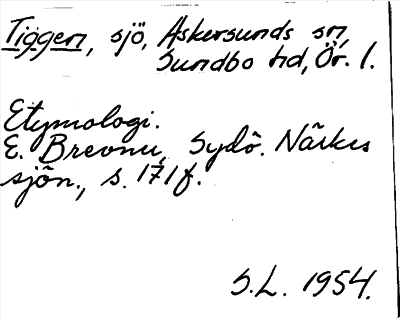 Tiggen, sjö, Askersunds sn,
Sundbo hd, Ör. l.
Etymologi.
E. Brevner, Sydö. Närkes
sjön., s. 171f.
S.L. 1954.